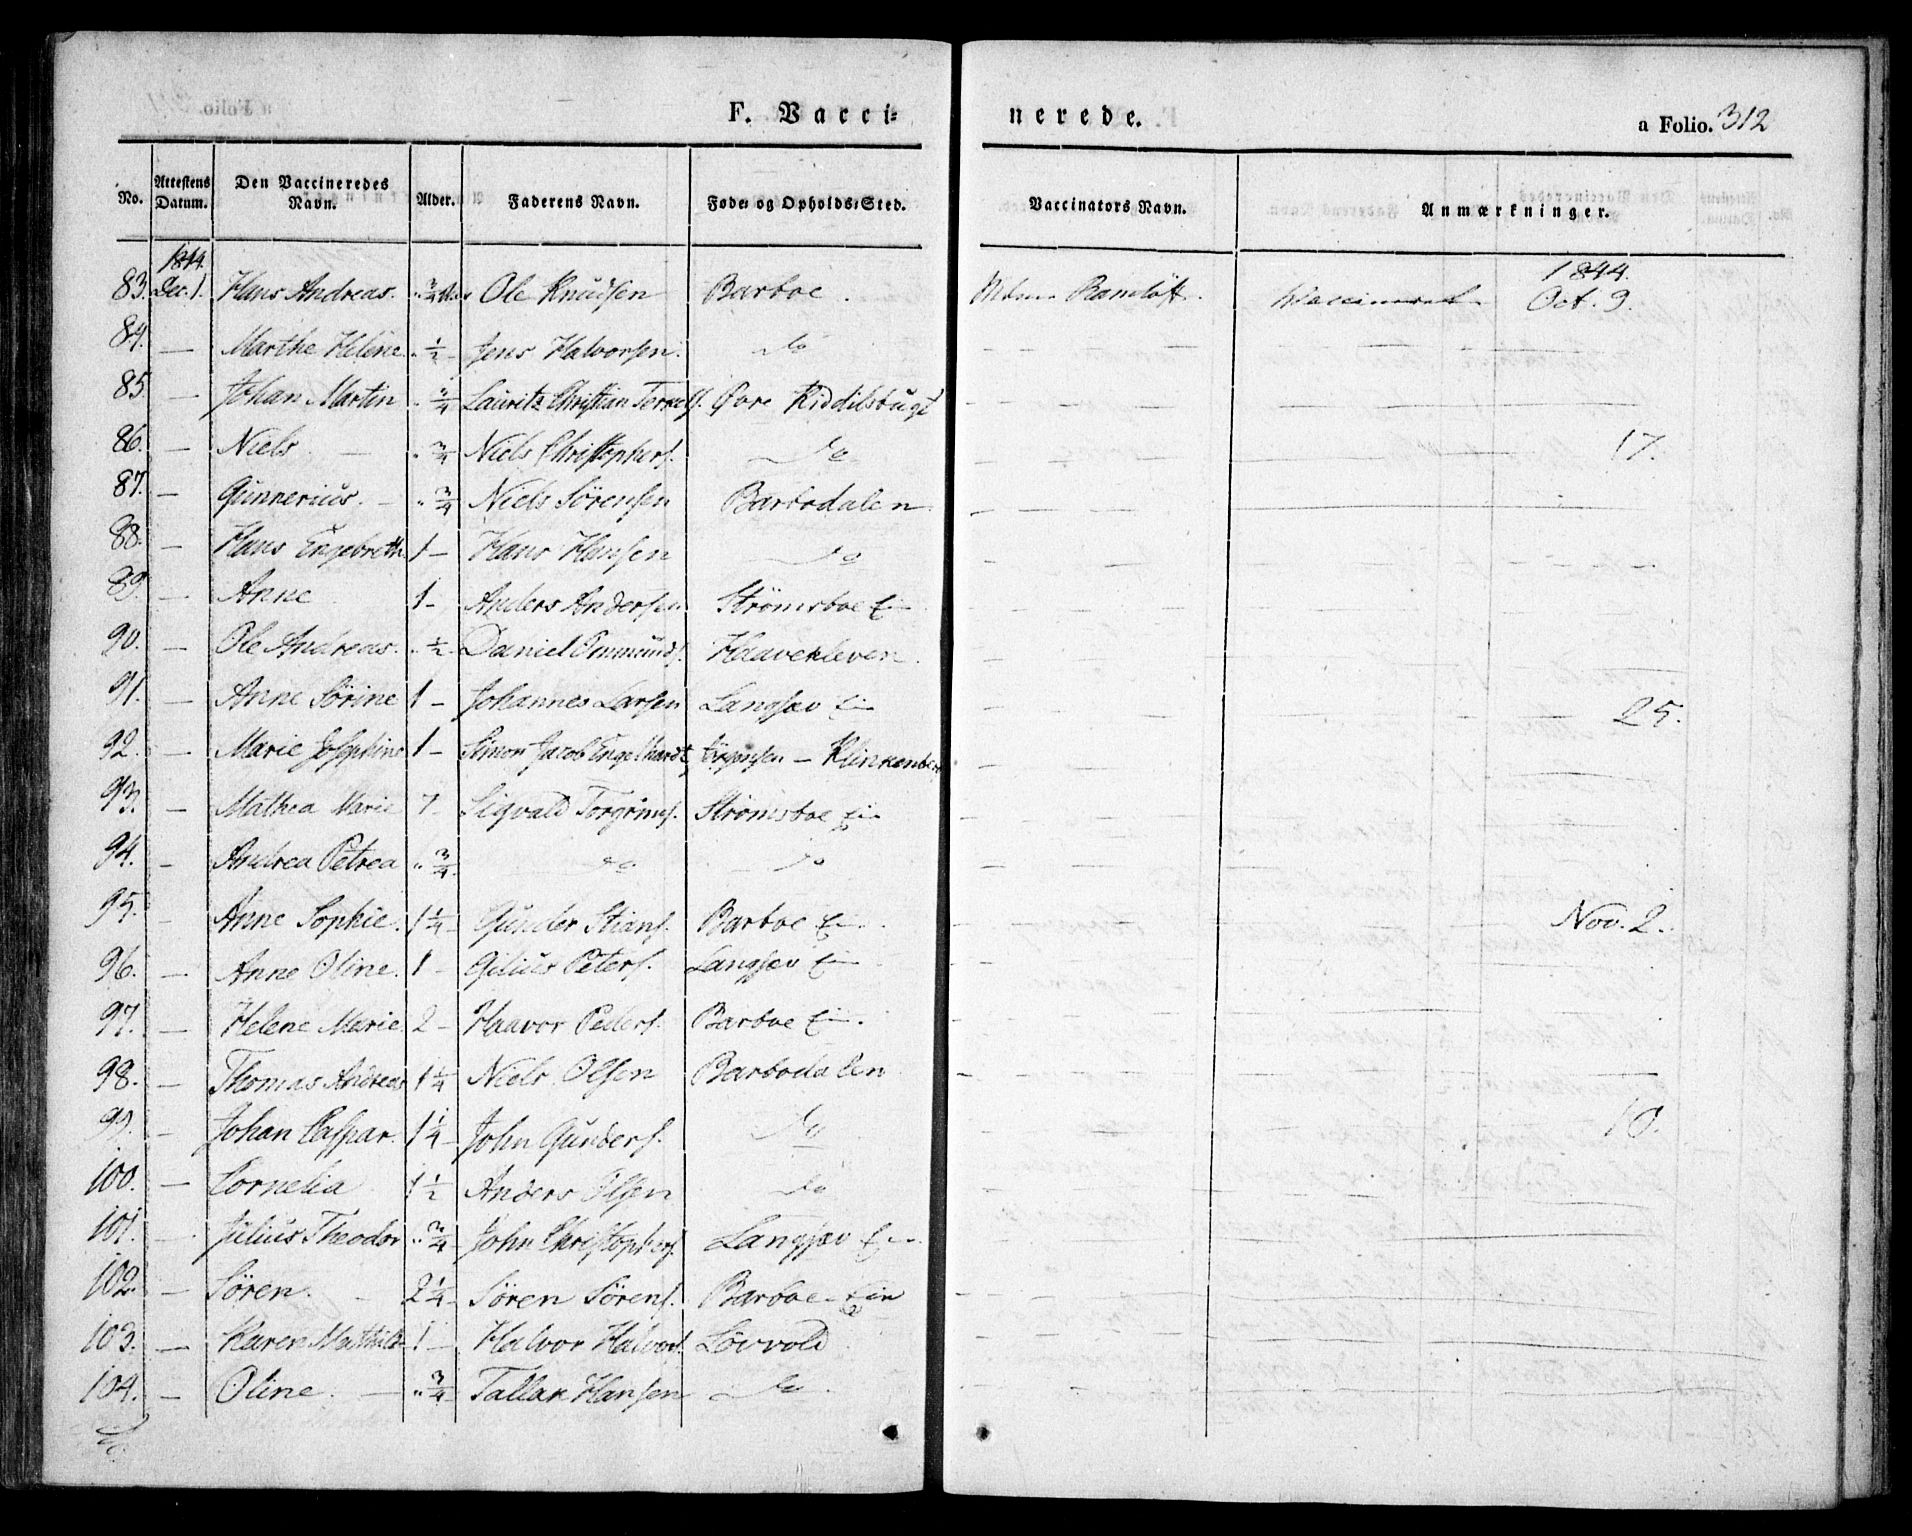 F. Vacci-
nerede.
a Folio. 312
No. Attestens Datum. Den Vaccineredes Navn. Alder. Faderens Navn. Føde- og Opholds-Sted. Vaccinators Navn. Anmærkninger.
1844. 1844.
83. Dec. 1. Hans Andreas. " 3/4 Ole Knudsen Barboe. Ramløff. Vaccineret Oct. 9.
84. — Marthe Helene " 1/2 - Jens Halvorsen. do — —
85. — Johan Martin " 3/4 Lauritz Christian Terkels. Øvre Kiddilsbugt — —
86. — Niels — " 3/4 Niels Christophers. do — — 17.
87. — Gunnerius. - " 3/4 Niels Sörensen Barbodalen. — —
88. — Hans Engebreth 1 - Hans Hansen do — —
89. — Anne 1 - Anders Andersen Strömsboe Ei— — —
90. — Ole Andreas. " 1/2 - Daniel Ommunds. Haavekleven. — —
91. — Anne Sörine 1 - Johannes Larsen Langsæv Ei— — — 25.
92. — Marie Josephine 1 - Simon Jacob Engelhardt Jörgensen — Klinkenberg — —
93. — Mathea Marie 7 - Sigvald Torgrims. Strömsboe Ei— — —
94. — Andrea Petrea " 3/4 do do — —
95. — Anne Sophie. 1 1/4 - Gunder Stians. Barboe Ei—. — — Nov. 2.
96. — Anne Oline. 1 - Gilius Peters. Langsæv Ei— — —
97. — Helene Marie 2 - Haavor Peders. Barboe Ei—. — —
98. — Thomas Andreas 1 1/4 Niels Olsen Barbodalen — —
99. — Johan Caspar. 1 1/4 - John Gunders. do — — 10.
100. — Cornelia 1 1/2 - Anders Olsen do — —
101. — Julius Theodor " 3/4 - John Christophers. Langsæv Ei— — —
102. — Sören. - 2 1/4 - Sören Sörens. Barboe - Ei— — —
103. — Karen Mathilde 1 - Halvor Halvors. Lövvold — —
104. — Oline. — " 3/4 - Tallak Hansen do. — —